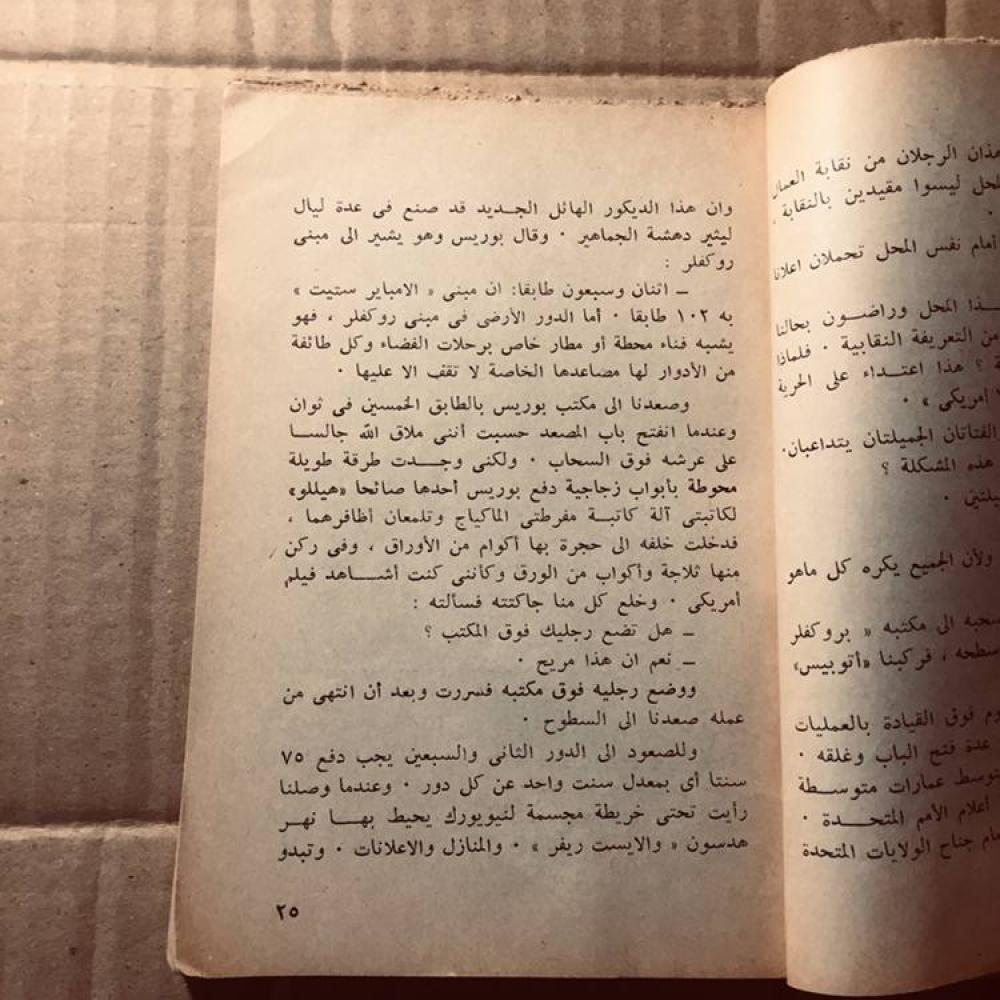 هذان الرجلان من نقابة العمال
المحل ليسوا مقيدين بالنقابة .
أمام نفس المحل تحملان اعلانا
هذا المحل وراضون بحالنا
من التعريفة النقابية . فلماذا
؟ هذا اعتداء على الحرية
امريكى » .
الفتاتان الجميلتان يتداعبان .
هذه المشكلة ؟
ولأن الجميع يكره كل ماهو
الى مكتبه « بروكفلر
، فركبنا «أتوبيس»
فوق القيادة بالعمليات
عدة فتح الباب وغلقه .
عمارات متوسطة
أعلام الأمم المتحدة .
جناح الولايات المتحدة
وان هذا الديكور الهائل الجديد قد صنع فى عدة ليال
ليثير دهشة الجماهير . وقال بوريس وهو يشير الى مبنى
روكفلر :
ــ اثنان وسبعون طابقا: ان مبنى « الامباير ستيت »
به ١٠٢ طابقا . أما الدور الأرضى فى مبنى روكفلر ، فهو
يشبه فناء محطة أو مطار خاص برحلات الفضاء وكل طائفة
من الأدوار لها مصاعدها الخاصة لا تقف الا عليها .
وصعدنا الى مكتب بوريس بالطابق الخمسين فى ثوان
وعندما انفتح باب المصعد حسبت أننى ملاق الله جالسا
على عرشه فوق السحاب . ولكنى وجدت طرقة طويلة
محوطة بأبواب زجاجية دفع بوريس أحدها صائحا «هيللو»
لكاتبتى آلة كاتبة مفرطتى الماكياج وتلمعان أظافرهما ،
فدخلت خلفه الى حجرة بها أكوام من الأوراق ، وفى ركن
منها ثلاجة وأكواب من الورق وكأننى كنت أشاهد فيلم
أمريكى . وخلع كل منا جاكتته فسألته :
ــ هل تضع رجليك فوق المكتب ؟
ــ نعم ان هذا مريح .
ووضع رجليه فوق مكتبه فسررت وبعد أن انتهى من
عمله صعدنا الى السطوح .
وللصعود الى الدور الثانى والسبعين يجب دفع ٧٥
سنتا أى بمعدل سنت واحد عن كل دور . وعندما وصلنا
رأيت تحتى خريطة مجسمة لنيويورك يحيط بها نهر
هدسون « والايست ريفر » . والمنازل والاعلانات . وتبدو
٢٥